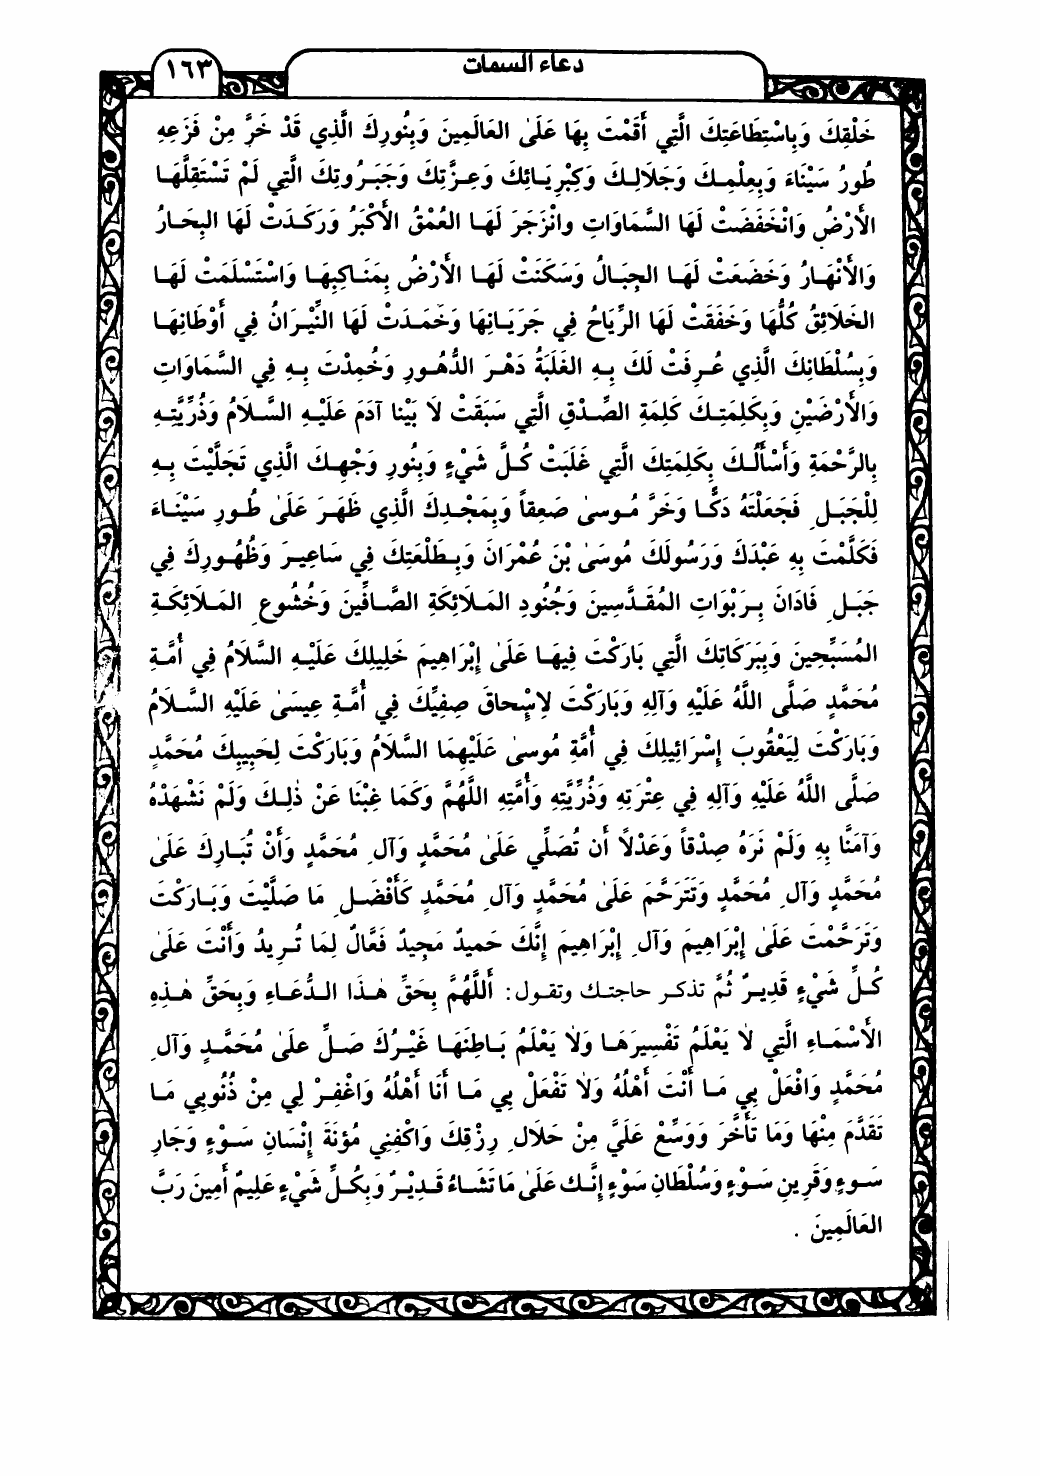 ١٦٣
دعاء السمات
خَلْقِكَ وَبِاسْتِطَاعَتِكَ الَّتِي أَقَمْتَ بِهَا عَلَىٰ العَالَمِينَ وَبِنُورِكَ الَّذِي قَدْ خَرَّ مِنْ فَزَعِهِ
طُورُ سَيْنَاءَ وَبِعِلْمِكَ وَجَلَالِكَ وَكِبْرِيَائِكَ وَعِزَّتِكَ وَجَبَرُوتِكَ الَّتِي لَمْ تَسْتَقِلَّهَا
الأَرْضُ وَانْخَفَضَتْ لَهَا السَّمَاوَاتِ وانْزَجَرَ لَهَا العُمْقُ الأَكْبَرُ وَرَكَدَتْ لَهَا البِحَارُ
وَالأَنْهَارُ وَخَضَعَتْ لَهَا الجِبَالُ وَسَكَنَتْ لَهَا الأَرْضُ بِمَنَاكِبِهَا وَاسْتَسْلَمَتْ لَهَا
الخَلَائِقُ كُلُّهَا وَخَفَقَتْ لَهَا الرِّيَاحُ فِي جَرَيَانِهَا وَخَمَدَتْ لَهَا النِّيرَانُ فِي أَوْطَانِهَا
وَبِسُلْطَانِكَ الَّذِي عُرِفَتْ لَكَ بِهِ الغَلَبَةُ دَهْرَ الدُّهُورِ وَحُمِدْتَ بِهِ فِي السَّمَاوَاتِ
وَالأَرْضَيْنِ وَبِكَلِمَتِكَ كَلِمَةِ الصِّدْقِ الَّتِي سَبَقَتْ لَا بَيْنا آدَمَ عَلَيْهِ السَّلَامُ وَذُرِّيَّتِهِ
بِالرَّحْمَةِ وَأَسْأَلُكَ بِكَلِمَتِكَ الَّتِي غَلَبَتْ كُلَّ شَيْءٍ وَبِنُورِ وَجْهِكَ الَّذِي تَجَلَّيْتَ بِهِ
لِلْجَبَلِ فَجَعَلْتَهُ دَكًّا وَخَرَّ مُوسىٰ صَعِقاً وَبِمَجْدِكَ الَّذِي ظَهَرَ عَلَىٰ طُورِ سَيْنَاءَ
فَكَلَّمْتَ بِهِ عَبْدَكَ وَرَسُولَكَ مُوسىٰ بْنَ عُمْرَانَ وَبِطَلْعَتِكَ فِي سَاعِيرَ وَظُهُورِكَ فِي
جَبَلِ فَادَانَ بِرَبْوَاتِ المُقَدَّسِينَ وَجُنُودِ المَلَائِكَةِ الصَّافِّينَ وَخُشُوعِ المَلَائِكَةِ
المُسَبِّحِينَ وَبِبَرَكَاتِكَ الَّتِي بَارَكْتَ فِيهَا عَلَىٰ إِبْرَاهِيمَ خَلِيلِكَ عَلَيْهِ السَّلَامُ فِي أُمَّةِ
مُحَمَّدٍ صَلَّى اللَّهُ عَلَيْهِ وَآلِهِ وَبَارَكْتَ لِإِسْحاقَ صِفِيِّكَ فِي أُمَّةِ عِيسَىٰ عَلَيْهِ السَّلَامُ
وَبَارَكْتَ لِيَعْقُوبَ إِسْرَائِيلِكَ فِي أُمَّةِ مُوسىٰ عَلَيْهِمَا السَّلَامُ وَبَارَكْتَ لِحَبِيبِكَ مُحَمَّدٍ
صَلَّى اللَّهُ عَلَيْهِ وَآلِهِ فِي عِتْرَتِهِ وَذُرِّيَّتِهِ وَأُمَّتِهِ اللَّهُمَّ وَكَمَا غِبْنَا عَنْ ذٰلِكَ وَلَمْ نَشْهَدْهُ
وَآمَنَّا بِهِ وَلَمْ نَرَهُ صِدْقاً وَعَدْلًا أَن تُصَلِّي عَلَىٰ مُحَمَّدٍ وَآلِ مُحَمَّدٍ وَأَنْ تُبَارِكَ عَلَىٰ
مُحَمَّدٍ وَآلِ مُحَمَّدٍ وَتَتَرَحَّمَ عَلَىٰ مُحَمَّدٍ وَآلِ مُحَمَّدٍ كَأَفْضَلِ مَا صَلَّيْتَ وَبَارَكْتَ
وَتَرَحَّمْتَ عَلَىٰ إِبْرَاهِيمَ وَآلِ إِبْرَاهِيمَ إِنَّكَ حَمِيدٌ مَجِيدٌ فَعَّالٌ لِمَا تُرِيدُ وَأَنْتَ عَلَىٰ
كُلِّ شَيْءٍ قَدِيرٌ ثُمَّ تذكر حاجتك وتقول: أَللَّهُمَّ بِحَقِّ هٰذَا الدُّعَاءِ وَبِحَقِّ هٰذِهِ
الأَسْمَاءِ الَّتِي لَا يَعْلَمُ تَفْسِيرَهَا وَلَا يَعْلَمُ بَاطِنَهَا غَيْرُكَ صَلِّ عَلىٰ مُحَمَّدٍ وَآلِ
مُحَمَّدٍ وَافْعَلْ بِي مَا أَنْتَ أَهْلُهُ وَلَا تَفْعَلْ بِي مَا أَنَا أَهْلُهُ وَاغْفِرْ لِي مِنْ ذُنُوبِي مَا
تَقَدَّمَ مِنْهَا وَمَا تَأَخَّرَ وَوَسِّعْ عَلَيَّ مِنْ حَلَالِ رِزْقِكَ وَاكْفِنِي مُؤْنَةَ إِنْسَانِ سَوْءٍ وَجَارِ
سَوءٍ وَقَرِينِ سَوْءٍ وَسُلْطَانِ سَوْءٍ إِنَّكَ عَلَىٰ مَا تَشَاءُ قَدِيرٌ وَبِكُلِّ شَيْءٍ عَلِيمٌ أَمِينَ رَبَّ
العَالَمِينَ .